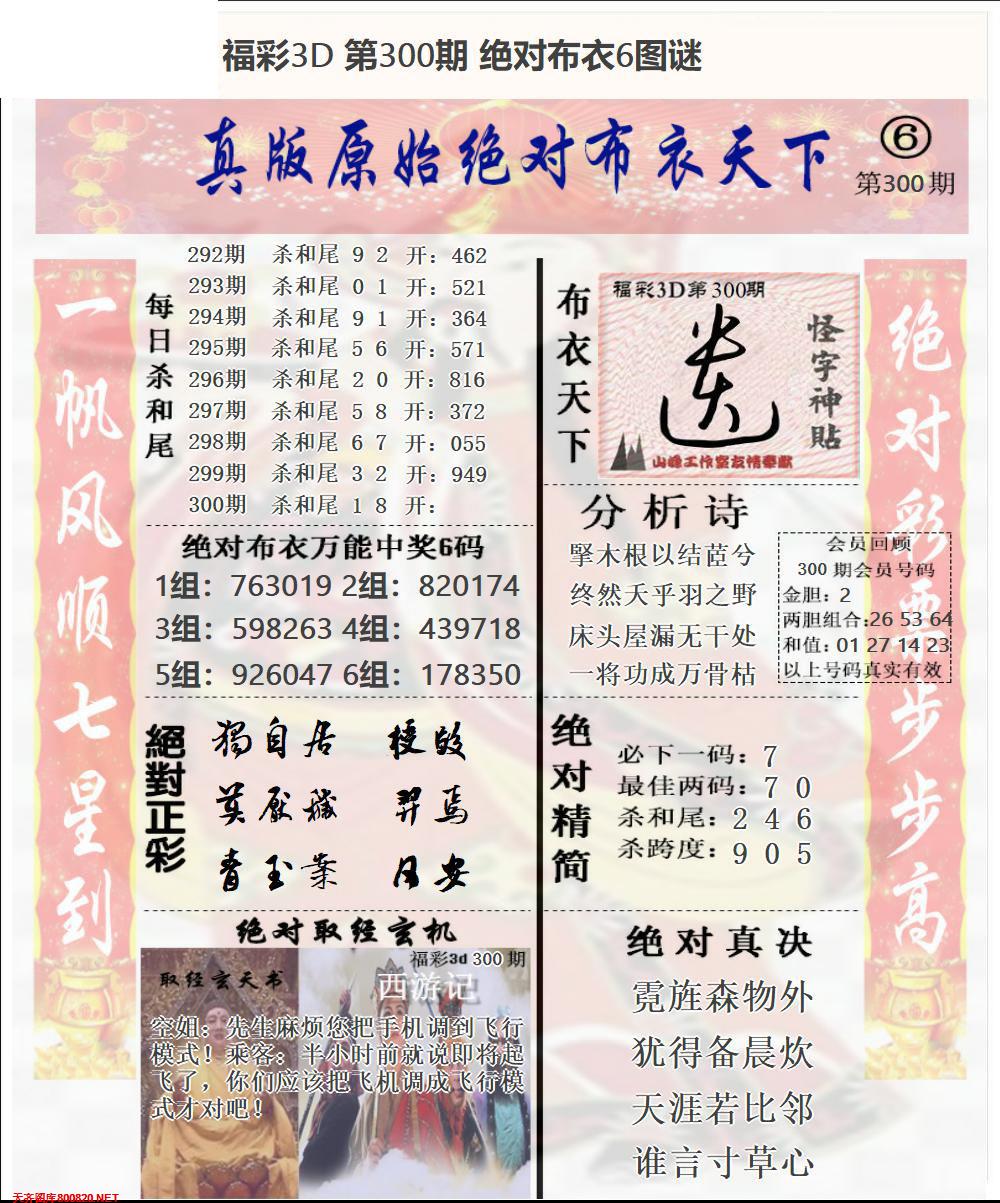 福彩3D 第300期 绝对布衣6图谜
真版原始绝对布衣天下
⑥
第300期
一帆风顺七星到
绝对彩票步步高
每日杀和尾
292期 杀和尾 9 2 开：462
293期 杀和尾 0 1 开：521
294期 杀和尾 9 1 开：364
295期 杀和尾 5 6 开：571
296期 杀和尾 2 0 开：816
297期 杀和尾 5 8 开：372
298期 杀和尾 6 7 开：055
299期 杀和尾 3 2 开：949
300期 杀和尾 1 8 开：
布衣天下
福彩3D第300期
怪字神貼
山峰工作室友情奉献
绝对布衣万能中奖6码
1组：763019 2组：820174
3组：598263 4组：439718
5组：926047 6组：178350
分析诗
擥木根以结茝兮
终然夭乎羽之野
床头屋漏无干处
一将功成万骨枯
会员回顾
300 期会员号码
金胆：2
两胆组合:26 53 64
和值：01 27 14 23
以上号码真实有效
絕對正彩
獨自居
青玉案
绝对精简
必下一码：7
最佳两码：7 0
杀和尾：2 4 6
杀跨度：9 0 5
绝对取经玄机
福彩3d 300 期
取经玄天书
西游记
空姐：先生麻烦您把手机调到飞行
模式！乘客：半小时前就说即将起
飞了，你们应该把飞机调成飞行模
式才对吧！
绝对真决
霓旌森物外
犹得备晨炊
天涯若比邻
谁言寸草心
天齐图库800820.NET